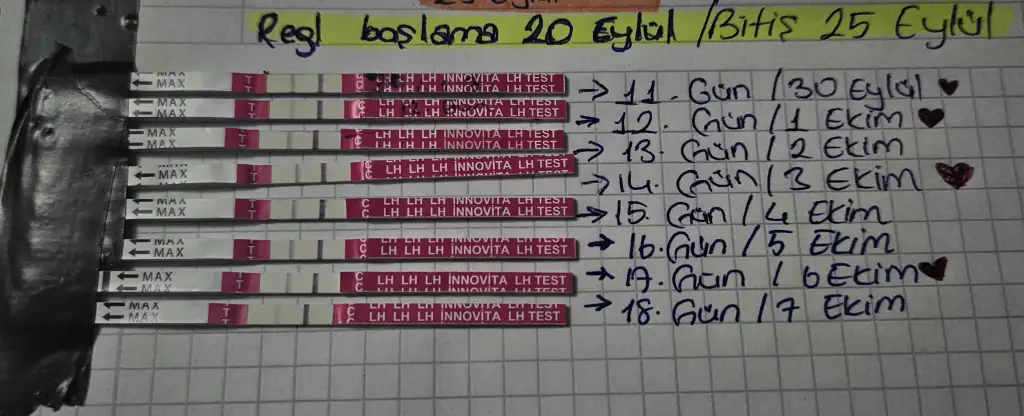 Regl başlama 20 Eylül / Bitiş 25 Eylül
MAX
MAX T T C LH LH LH INNOVİTA LH TEST → 11. Gün / 30 Eylül ♥
MAX
MAX T T C LH LH LH INNOVİTA LH TEST → 12. Gün / 1 Ekim ♥
MAX
MAX T T C LH LH LH INNOVİTA LH TEST → 13. Gün / 2 Ekim
MAX T T C LH LH LH INNOVİTA LH TEST → 14. Gün / 3 Ekim ♥
MAX
MAX T T C C LH LH LH INNOVİTA LH TEST → 15. Gün / 4 Ekim
MAX
MAX T T C C LH LH LH INNOVİTA LH TEST → 16. Gün / 5 Ekim
MAX
MAX T T C C LH LH LH INNOVİTA LH TEST → 17. Gün / 6 Ekim ♥
MAX
MAX T T C C LH LH LH INNOVİTA LH TEST → 18. Gün / 7 Ekim